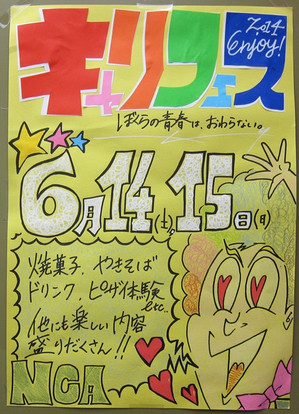 2014
enjoy!
キャリフェス
ぼくらの青春は、おわらない。
6月14(土).15日(日)
焼菓子、やきそば
ドリンク、ピザ体験
etc.
他にも楽しい内容
盛りだくさん!!
NCA